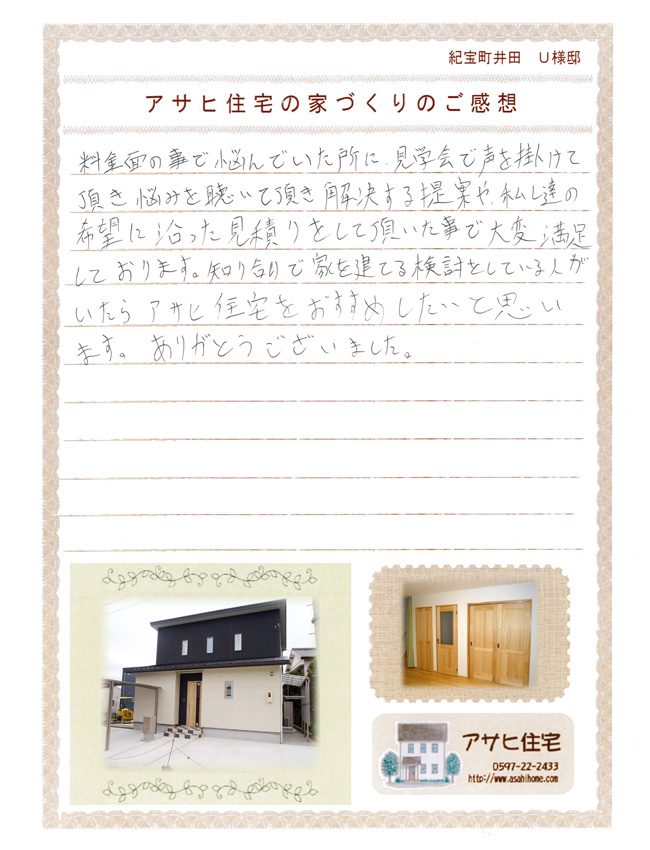 紀宝町井田　U様邸
アサヒ住宅の家づくりのご感想
料金面の事で悩んでいた所に、見学会で声を掛けて
頂き悩みを聴いて頂き解決する提案や、私し達の
希望に沿った見積りをして頂いた事で大変満足
しております。知り合いで家を建てる検討をしている人が
いたらアサヒ住宅をおすすめしたいと思い
ます。ありがとうございました。
アサヒ住宅
0597-22-2433
http://www.asahihome.com